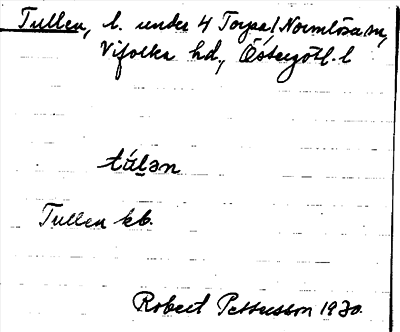 Tullen, l. under 4 Torpa/Normlösa sn,
Vifolka hd., Östergötl. l
túlən
Tullen kb.
Robert Pettersson 1930.